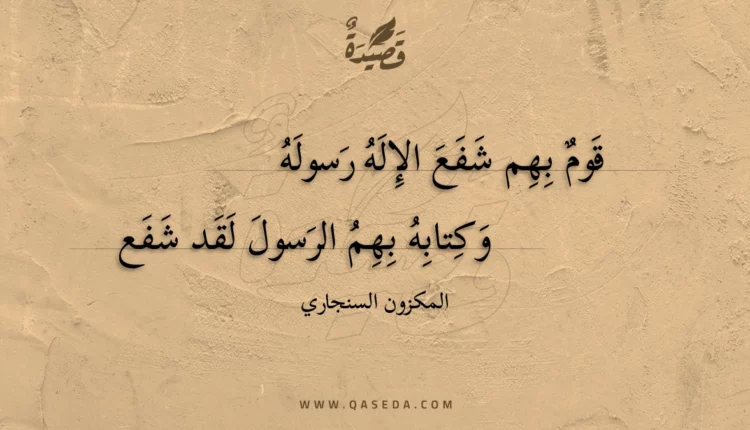 قَصيدَةٌ
قَومٌ بِهِم شَفَعَ الإِلَهُ رَسولَهُ
وَكِتابِهُ بِهِمُ الرَسولَ لَقَد شَفَع
المكزون السنجاري
WWW.QASEDA.COM